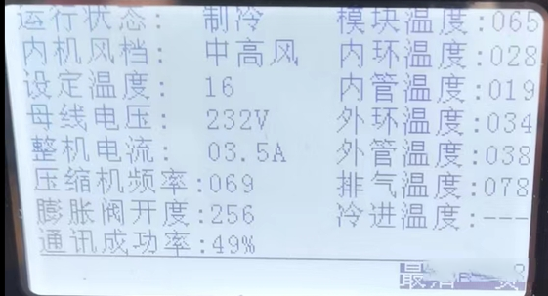 运行状态: 制冷 模块温度:065
内机风档: 中高风 内环温度:028
设定温度: 16 内管温度:019
母线电压: 232V 外环温度:034
整机电流: 03.5A 外管温度:038
压缩机频率:069 排气温度:078
膨胀阀开度:256 冷进温度:---
通讯成功率:49%
最后一页